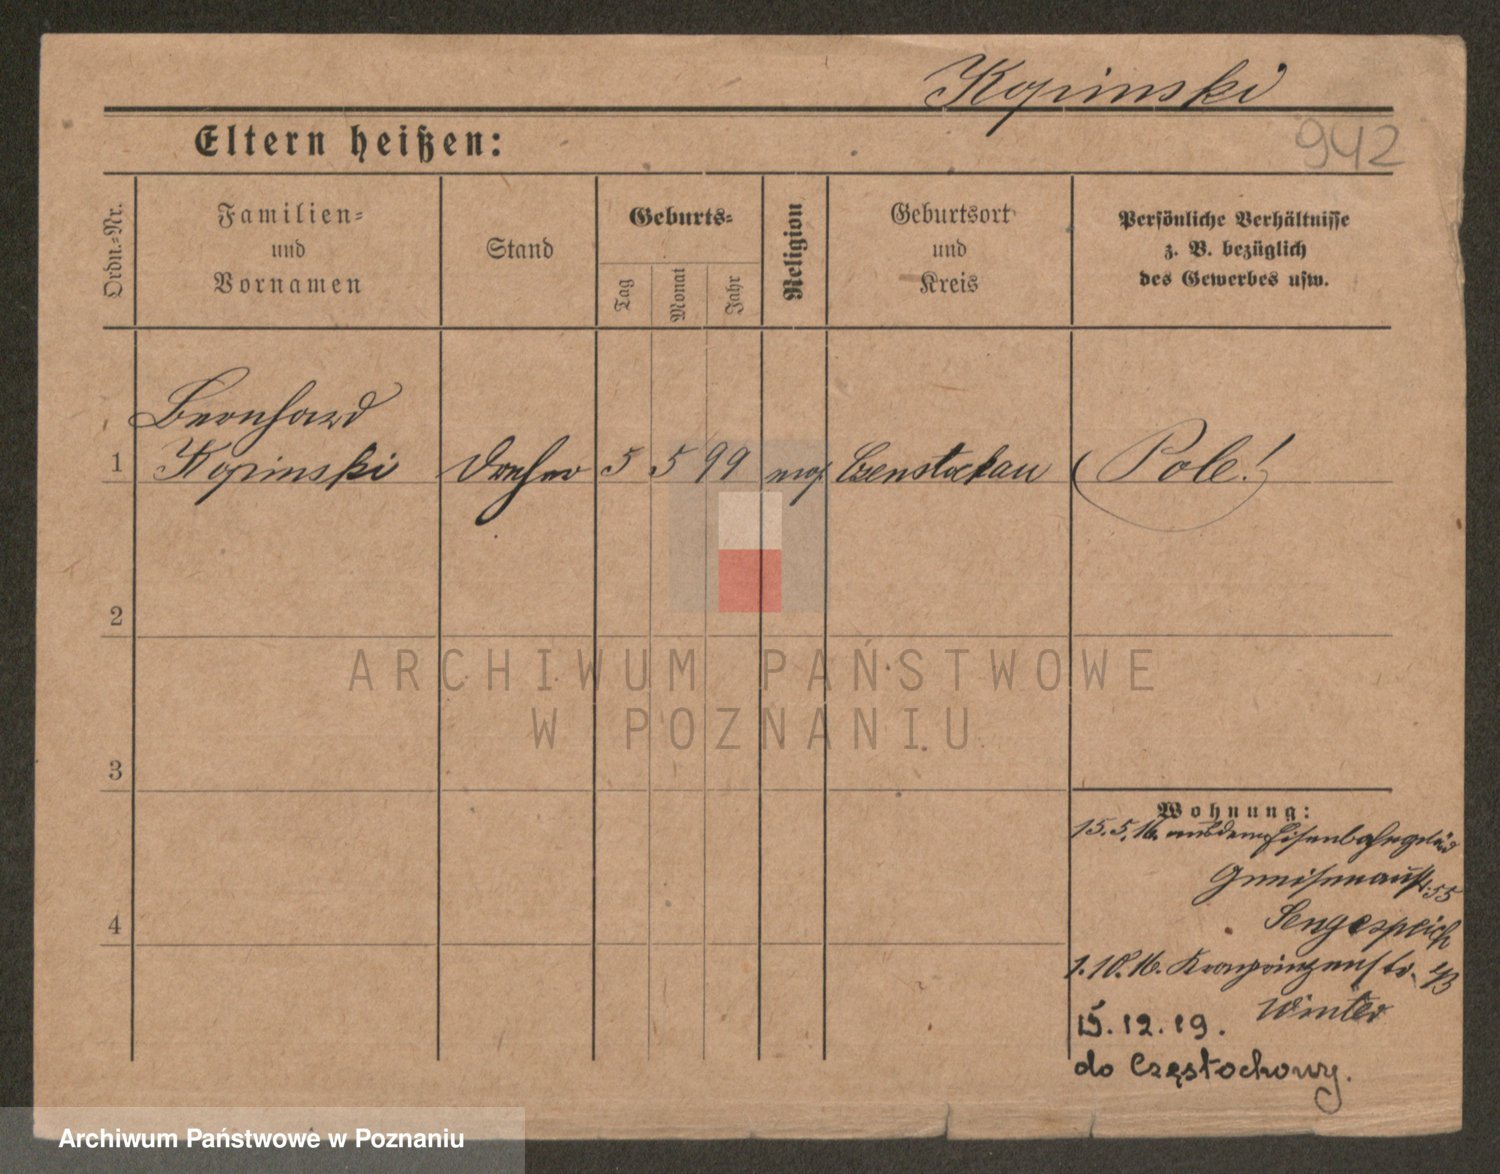 Kopinski
942
Eltern heißen:
Ordn.=Nr.
Familien=
und
Vornamen
Stand
Geburts=
Tag
Monat
Jahr
Religion
Geburtsort
und
Kreis
Persönliche Verhältnisse
z. B. bezüglich
des Gewerbes usw.
Bernhard
1 Kopinski Dreher 5 5 99 Czenstochau Pole!
2
ARCHIWUM PAŃSTWOWE
W POZNANIU
3
Wohnung:
15.5.16.
Gneisenaustr. 55
4
1.10.16. Kronprinzenstr.
Winter
15.12.19.
do Częstochowy.
Archiwum Państwowe w Poznaniu